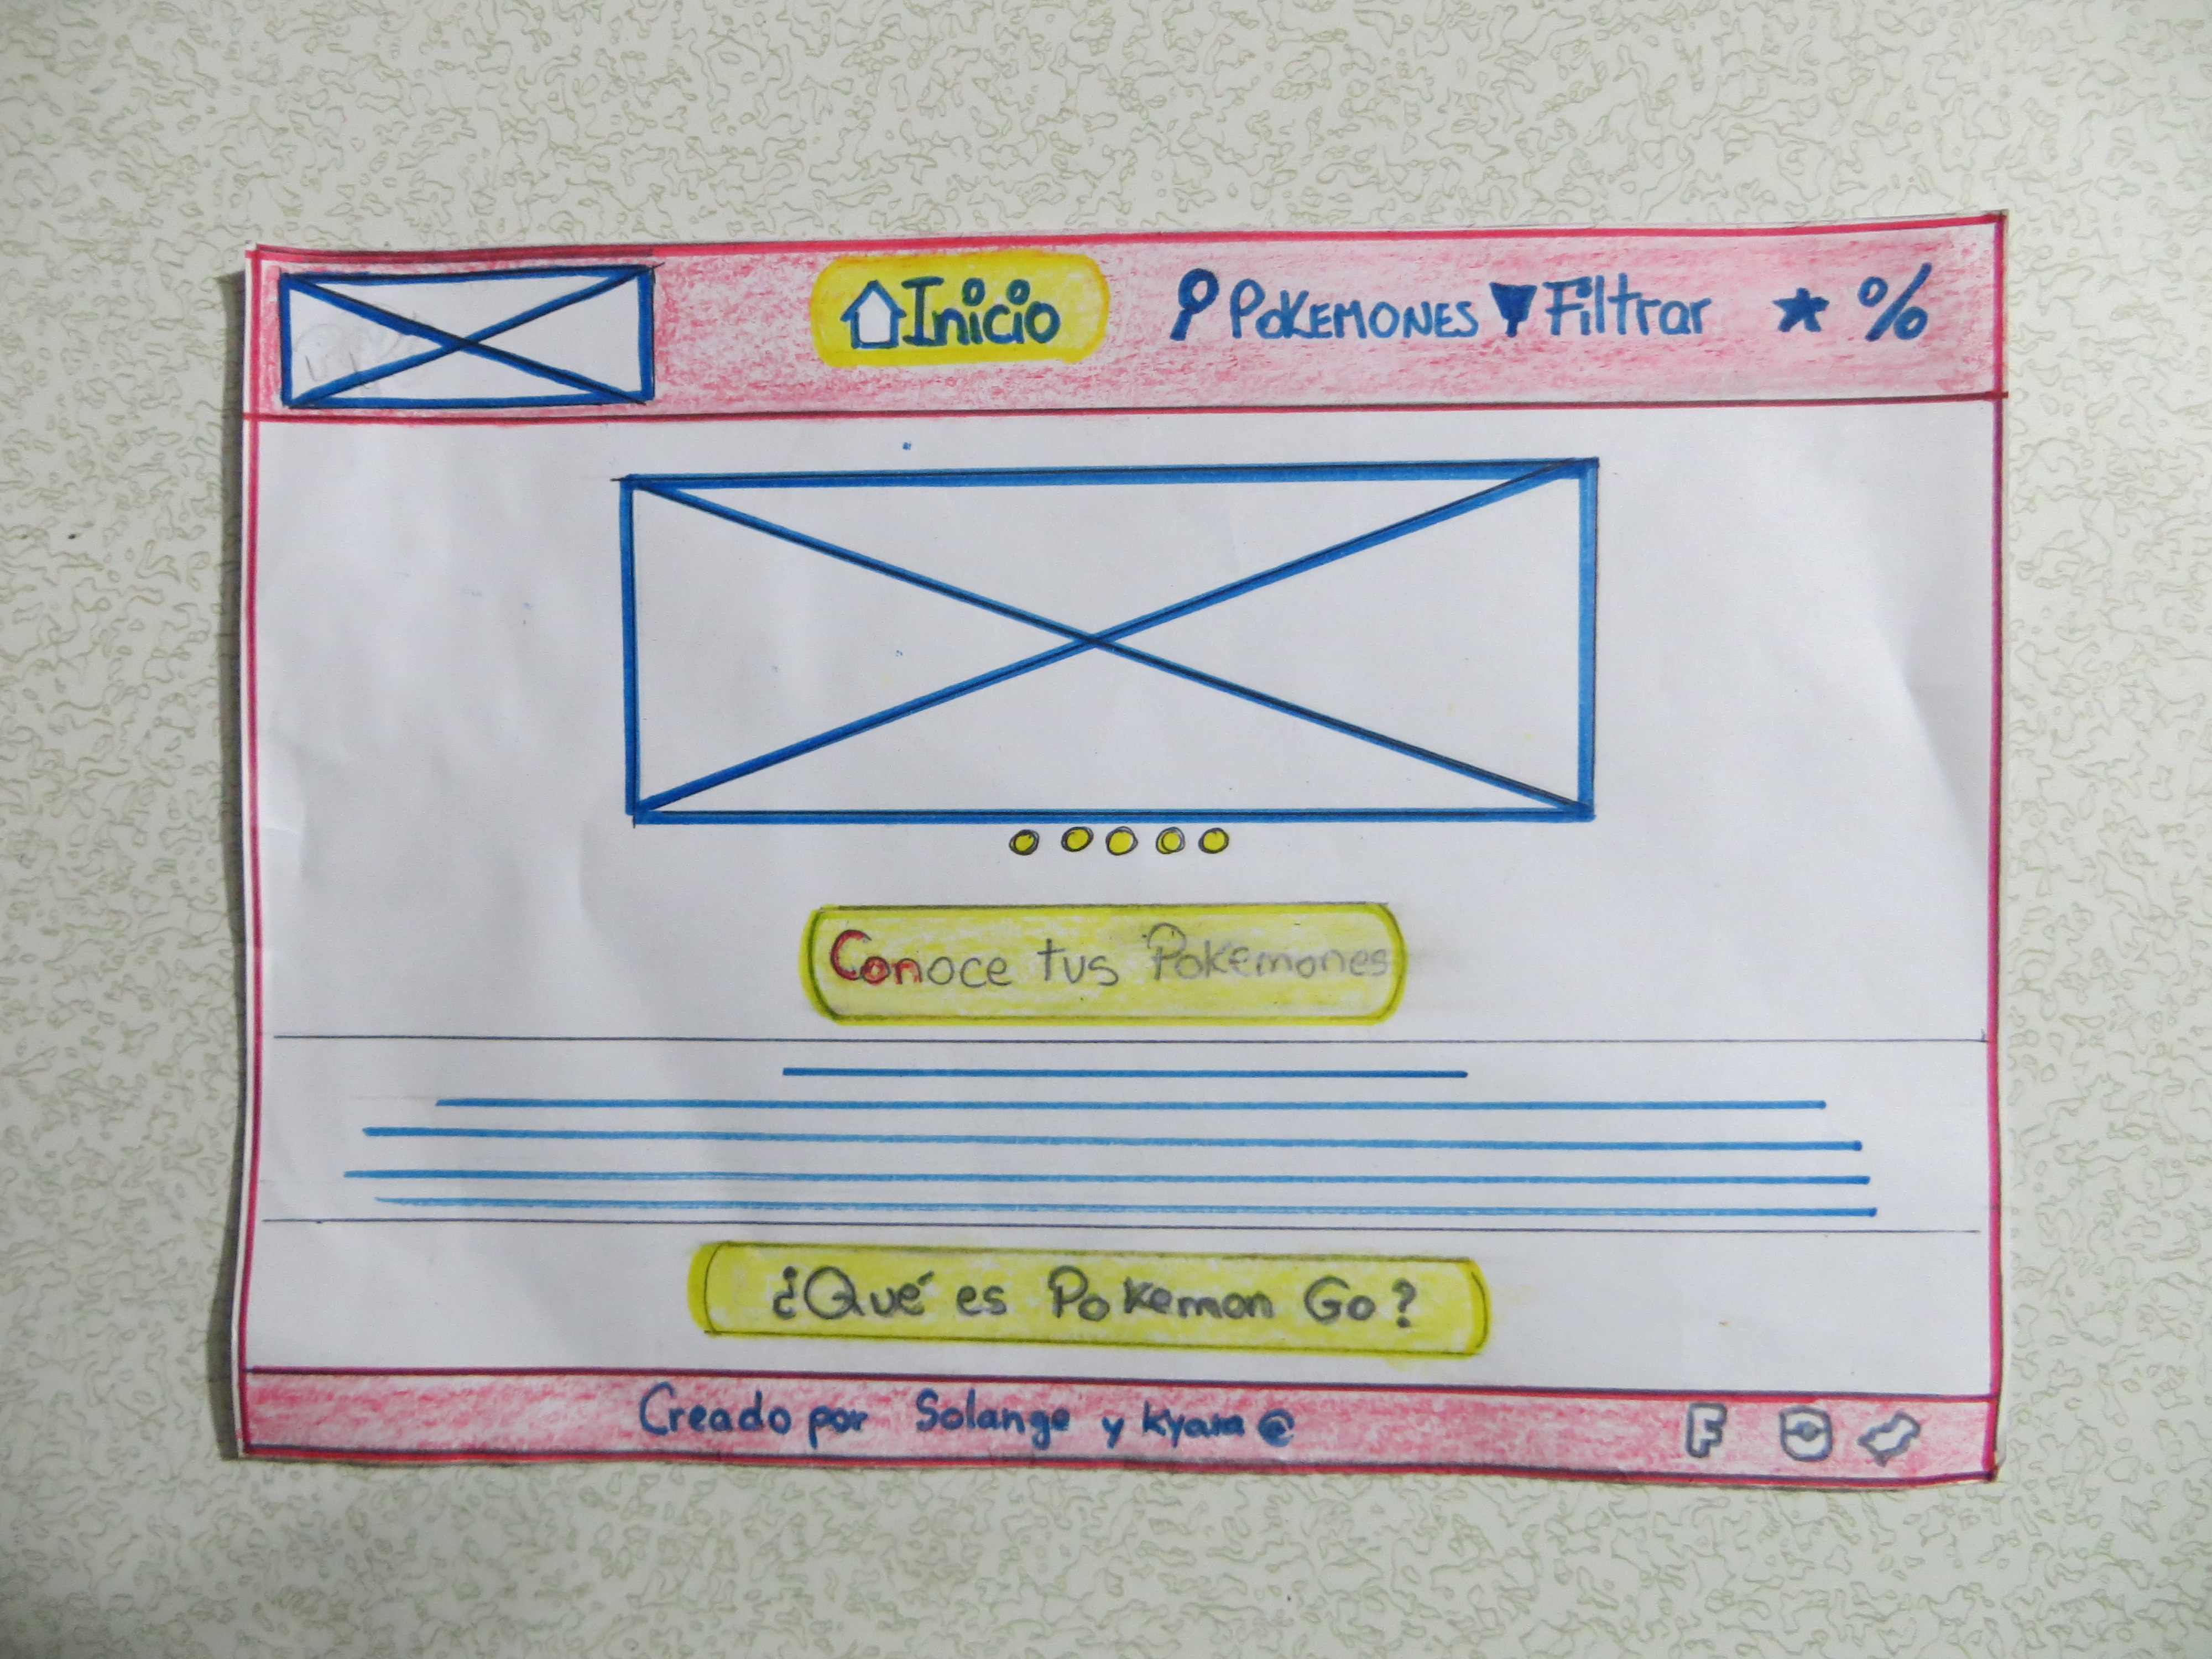 Inicio POKEMONES Filtrar ★ %
Conoce tus Pokemones
¿Qué es Pokemon Go?
Creado por Solange y Kyara @ F